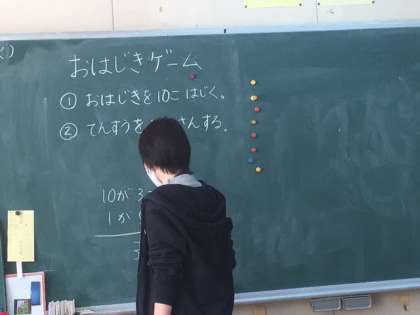 おはじきゲーム
① おはじきを10こ はじく。
② てんすうを さんする。
10が3
1が
3